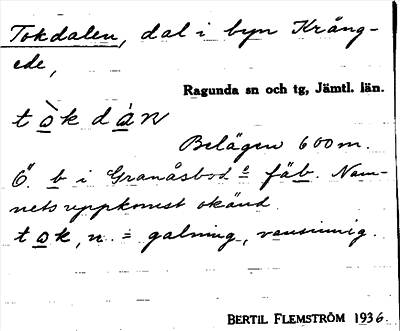 Tokdalen, dal i byn Krång-
ede,
Ragunda sn och tg, Jämtl. län.
tò̱k dà̱n
Belägen 600 m.
Ö. b i Granåsbode fäb. Nam-
nets uppkomst okänd.
tok, n. = galning, vansinnig.
BERTIL FLEMSTRÖM 1936.